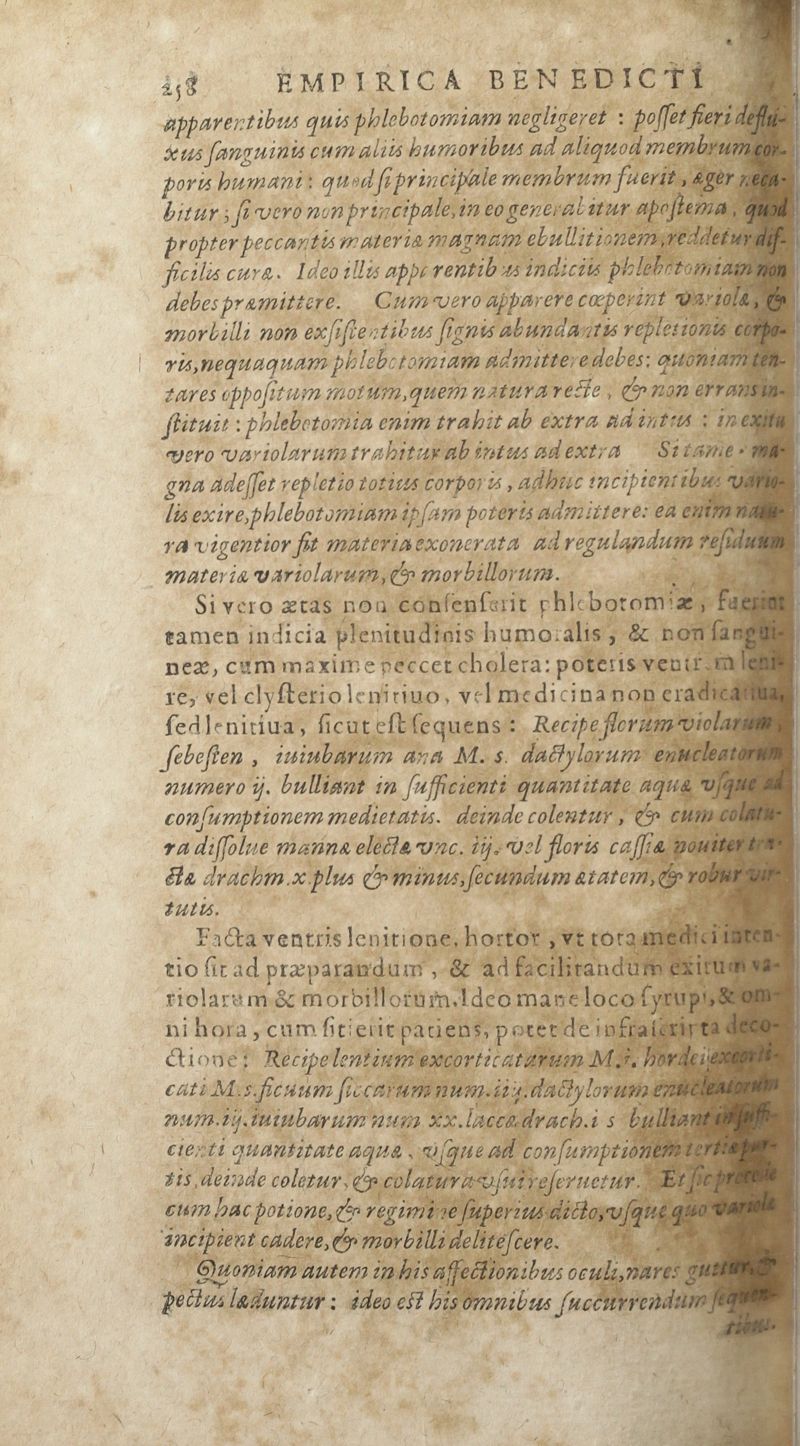 258 EMPIRICA BENEDICTI
apparentibus quis phlebotomiam negligeret : posset fieri deflu-
xus sanguinis cum aliis humoribus ad aliquod membrum cor-
poris humani : quod si principale membrum fuerit, æger neca-
bitur ; si vero non principale, in eo generabitur apostema, quod
propter peccantis materiæ magnam ebullitionem, reddetur dif-
ficilis curæ. Ideo illis apparentibus indiciis phlebotomiam non
debes præmittere. Cum vero apparere cœperint variolæ, &
morbilli non exsistentibus signis abundantis repletionis corpo-
ris, nequaquam phlebotomiam admittere debes: quoniam ten-
tares oppositum motum, quem natura recte, & non errans in-
stituit : phlebotomia enim trahit ab extra ad intus : in exitu
vero variolarum trahitur ab intus ad extra Si tamen ma-
gna adesset repletio totius corporis, adhuc incipientibus vario-
lis exire, phlebotomiam ipsam poteris admittere: ea enim natu-
ra vigentior fit materia exonerata ad regulandum residuum
materiæ variolarum, & morbillorum.
Si vero ætas non consenserit phlebotomiæ, fuerint
tamen indicia plenitudinis humoralis, & non sangui-
neæ, cum maxime peccet cholera: poteris ventrem leni-
re, vel clysterio lenitiuo, vel medicina non eradicatiua,
sed lenitiua, sicut est sequens : Recipe florum violarum,
sebesten, iuiubarum ana M. s. dactylorum enucleatorum
numero ij. bulliant in sufficienti quantitate aquæ vsque ad
consumptionem medietatis. deinde colentur, & cum colatu-
ra dissolue mannæ electæ vnc. iij. vel floris cassiæ nouiter tra-
ctæ drachm. x. plus & minus, secundum ætatem, & robur vir-
tutis.
Facta ventris lenitione, hortor, vt tota medici inten-
tio sit ad præparandum, & ad facilitandum exitum va-
riolarum & morbillorum. Ideo mane loco syrupi, & om-
ni hora, cum sitierit patiens, potet de infrascripta deco-
ctione : Recipe lentium excorticatarum M. j. hordei excorti-
cati M. s. ficuum siccarum num. iiij. dactylorum enucleatorum
num. iij. iuiubarum num xx. laccæ drach. i s bulliant in suffi-
cienti quantitate aquæ, vsque ad consumptionem tertiæ par-
tis, deinde coletur, & colatura vsui reseruetur. Et sic procede
cum hac potione, & regimine superius dicto, vsque quo variolæ
incipient cadere, & morbilli delitescere.
Quoniam autem in his affectionibus oculi, nares guttur, &
pectus læduntur : ideo est his omnibus succurrendum sequen-